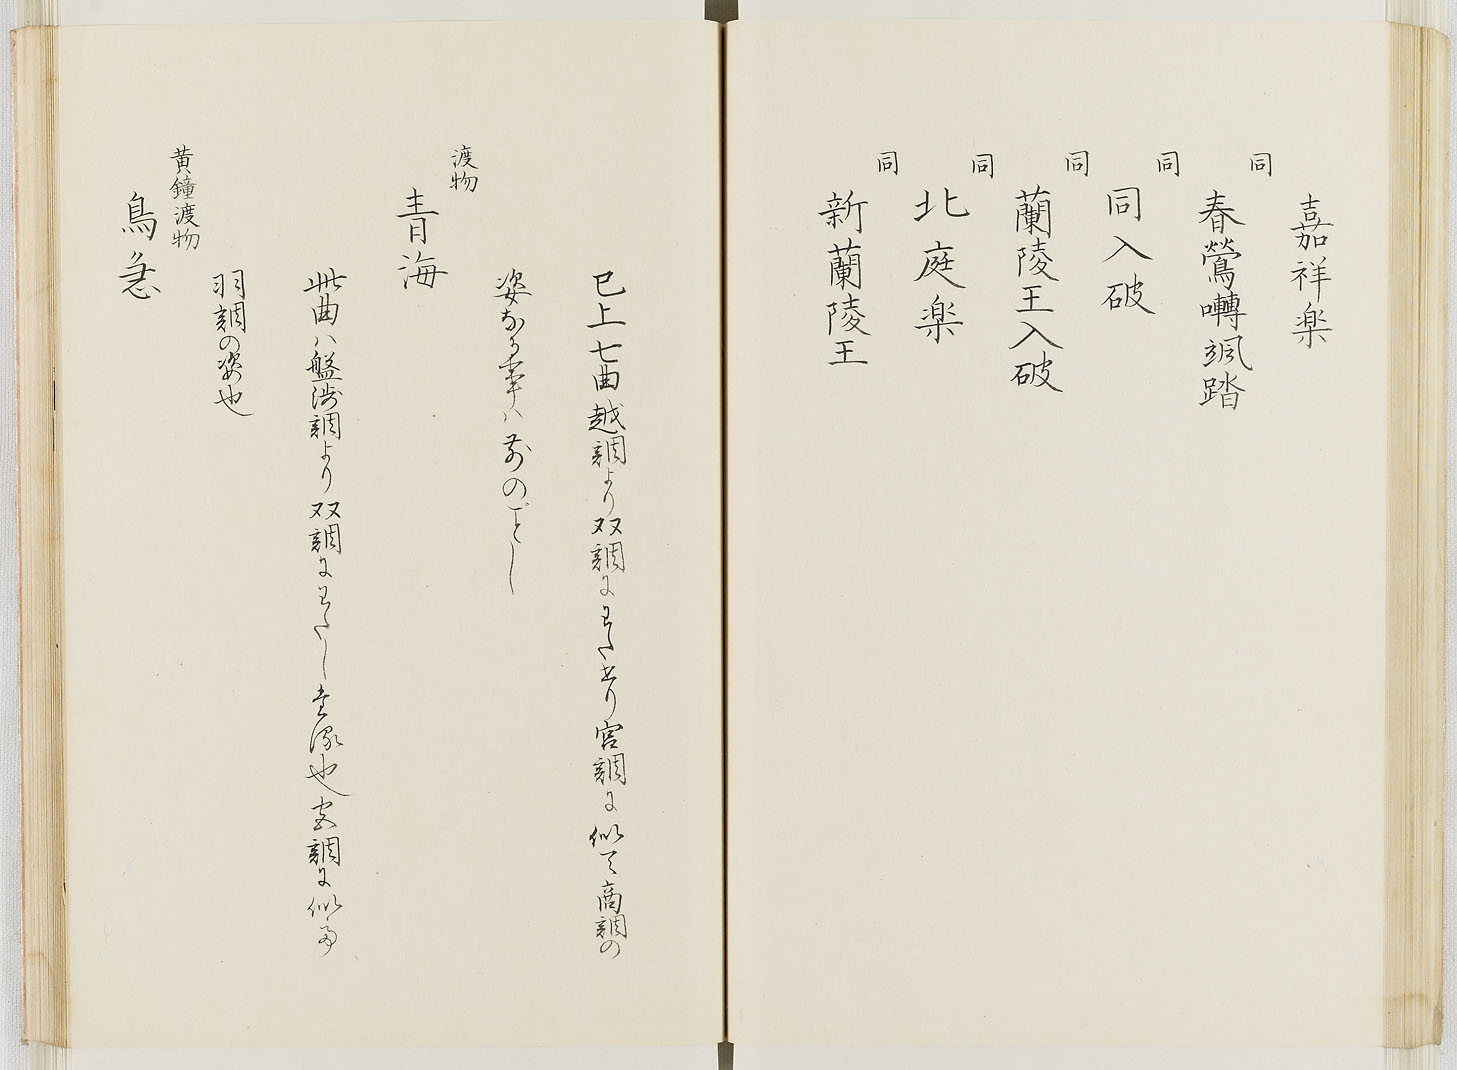 嘉祥楽
同
春鶯囀颯踏
同
同入破
同
蘭陵王入破
同
北庭楽
同
新蘭陵王
已上七曲越調より双調にわたせり宮調に似て商調の
姿なる事ハ前のごとし
渡物
青海
此曲ハ盤渉調より双調にわたし也調に似
羽調の姿也
黄鐘渡物
鳥急